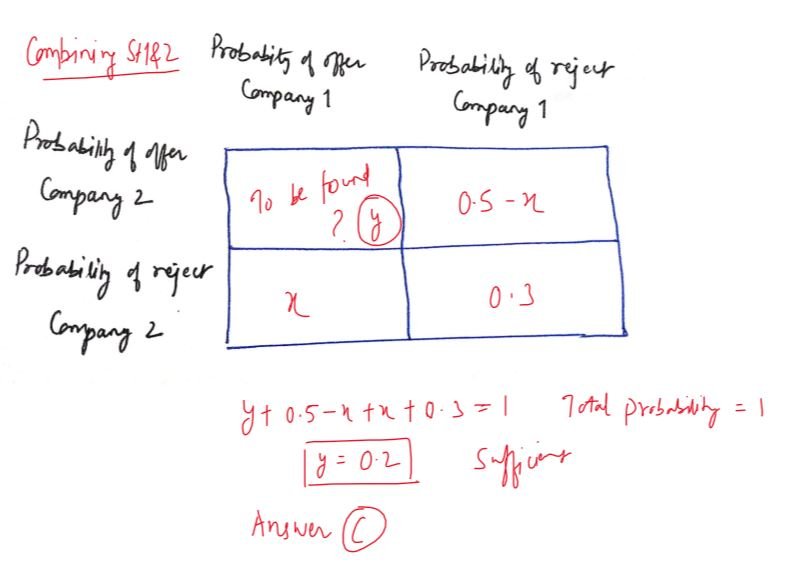 Combining St1&2
Probability of offer
Company 1
Probability of reject
Company 1
Probability of offer
Company 2
To be found
? y
0.5 - x
Probability of reject
Company 2
x
0.3
y + 0.5 - x + x + 0.3 = 1 Total probability = 1
y = 0.2 Sufficient
Answer C